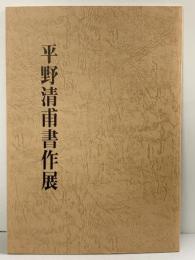 平野清甫書作展